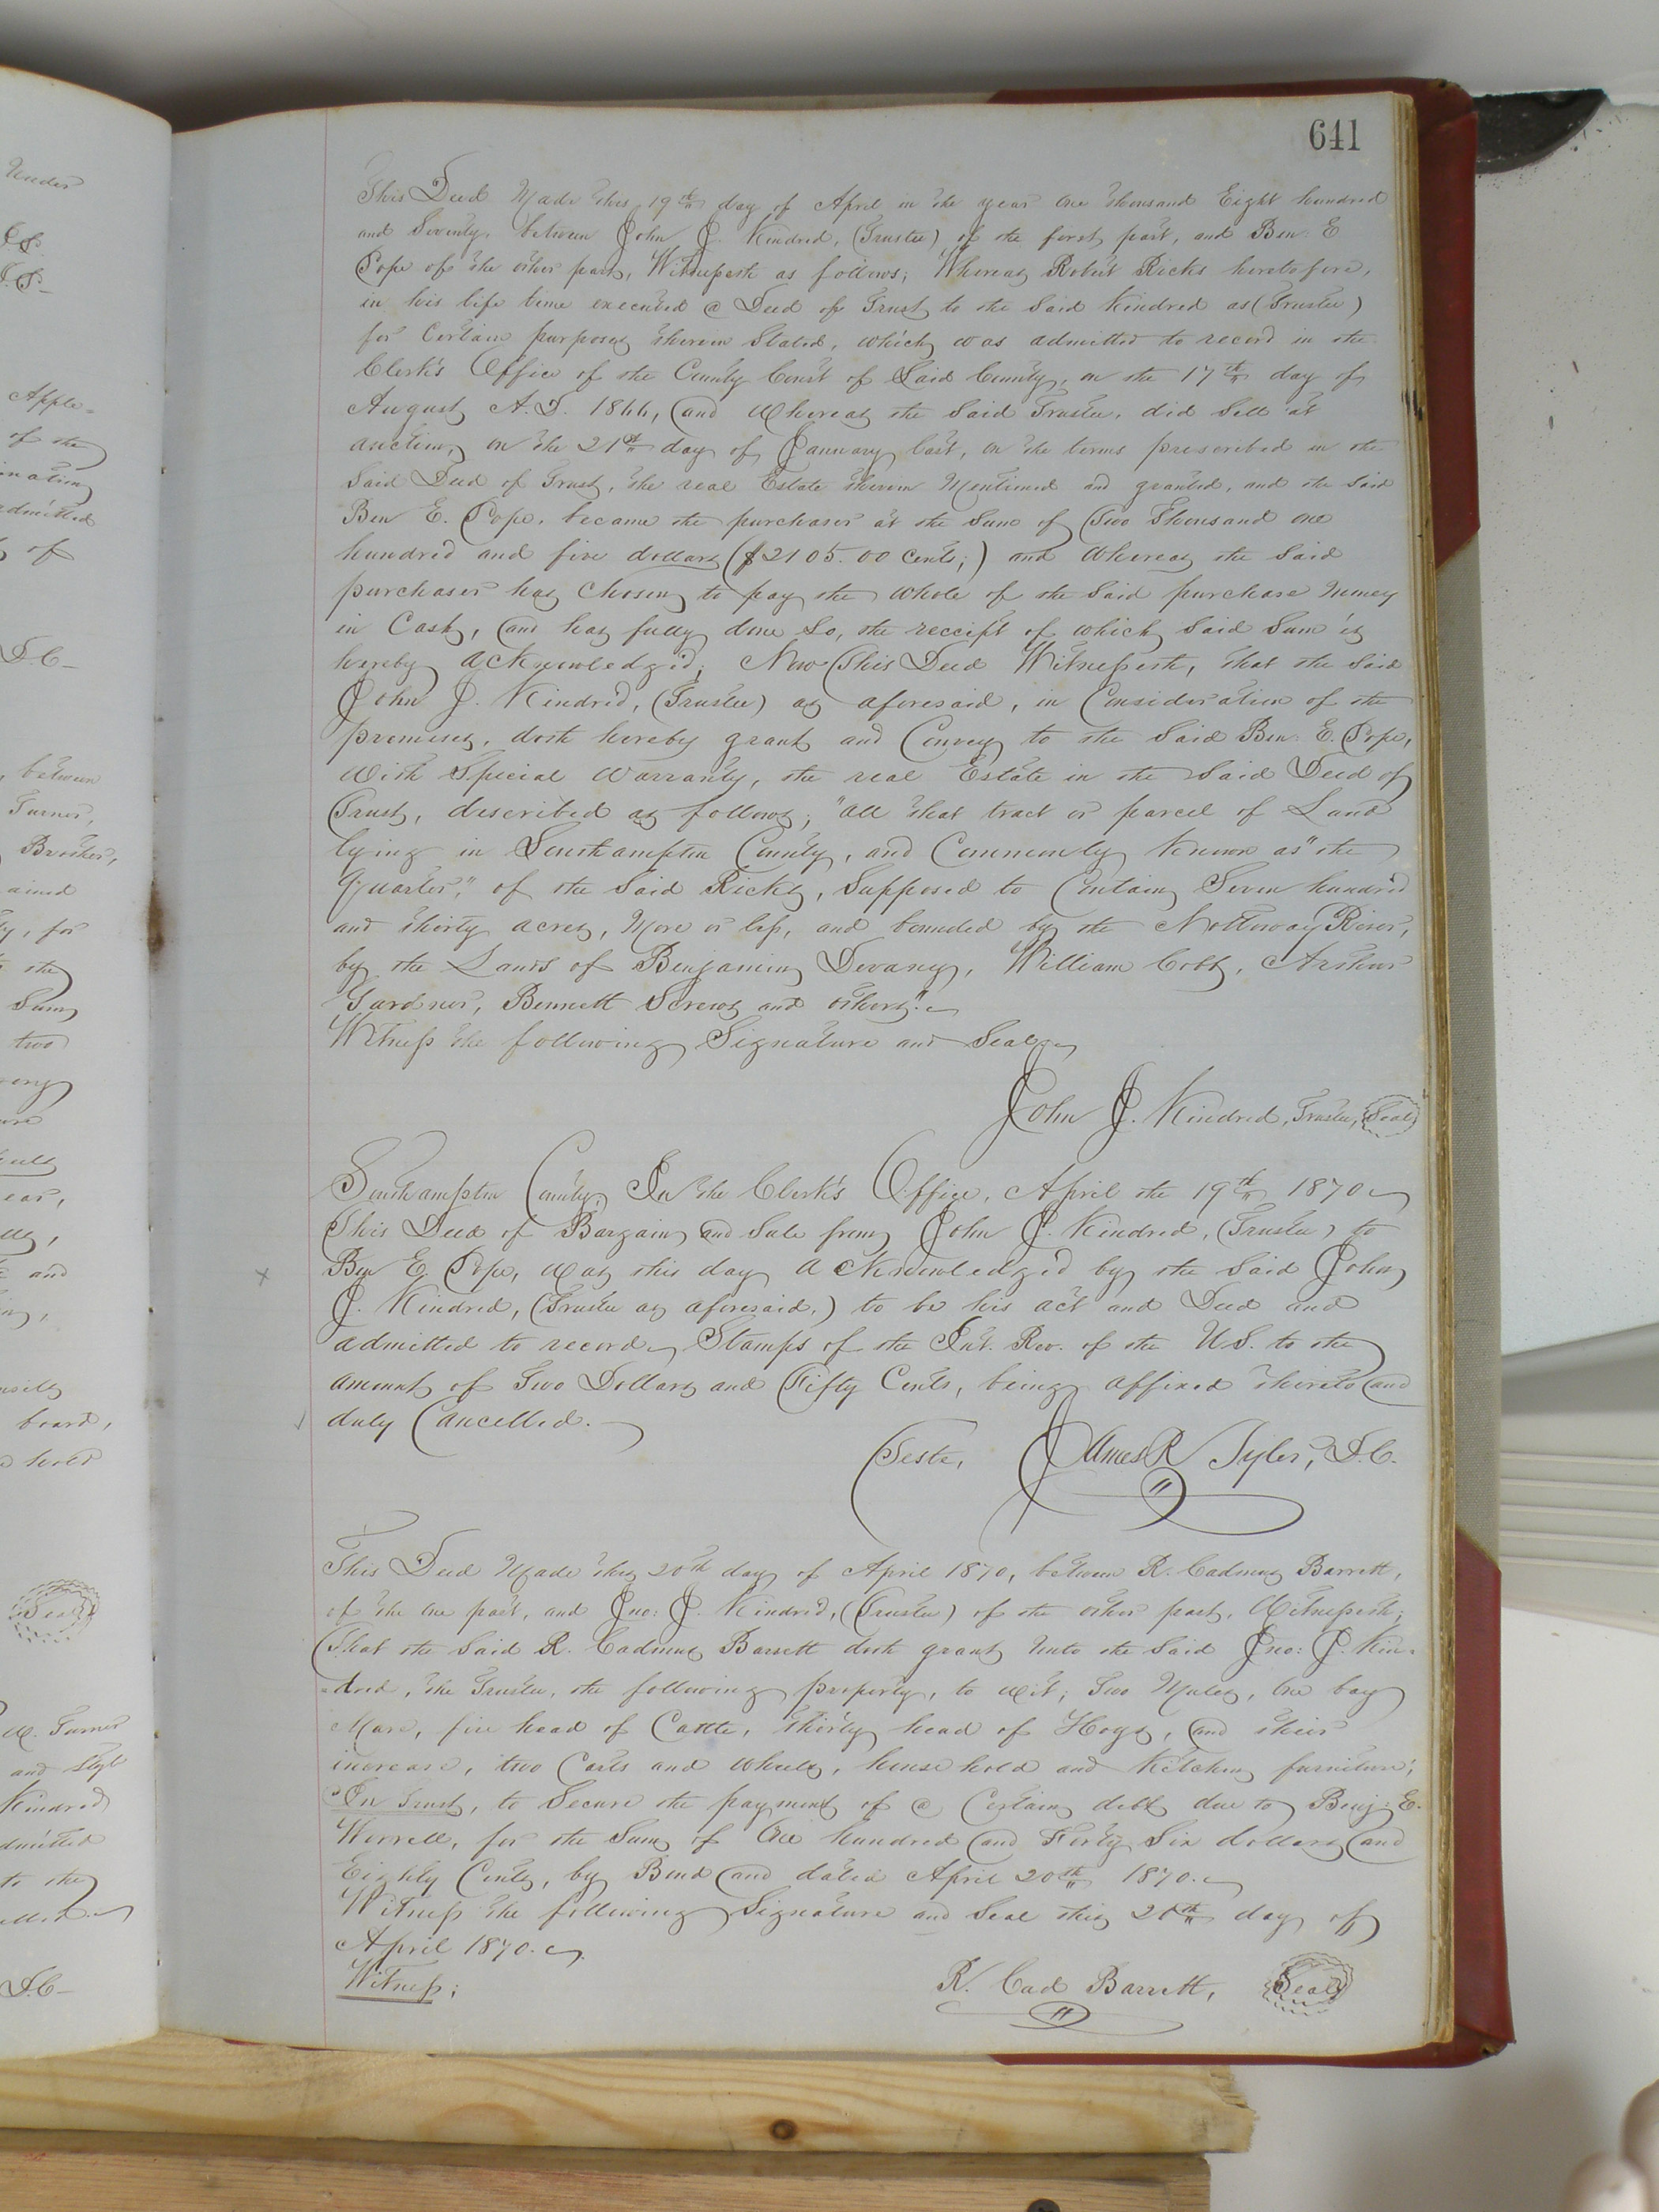 641
This Deed Made this 19th day of April in the year One thousand Eight hundred
and Seventy, between John J. Kindred, (Trustee) of the first part, and Ben: E
Pope of the other part, Witnesseth as follows; Whereas Robert Ricks heretofore,
in his life time executed @ Deed of Trust to the Said Kindred as (Trustee)
for Certain purposes therein Stated, which was admitted to record in the
Clerk's Office of the County Court of Said County, on the 17th day of
August A.D. 1866, and Whereas the Said Trustee, did Sell at
auction, on the 21st day of January last, on the terms prescribed in the
Said Deed of Trust, the real Estate therein Mentioned and granted, and the Said
Ben E. Pope, became the purchaser at the Sum of Two Thousand one
hundred and five dollars ($2105.00 Cents;) and Whereas the Said
purchaser has Chosen to pay the Whole of the Said purchase Money
in Cash, and has fully done So, the receipt of which Said Sum is
hereby acknowledg'd; Now This Deed Witnesseth, that the Said
John J. Kindred, (Trustee) as aforesaid, in Consideration of the
premises, doth hereby grant and Convey to the Said Ben: E. Pope,
With Special Warranty, the real Estate in the Said Deed of
Trust, described as follows; "All that tract or parcel of Land
lying in Southampton County, and Commonly Known as "the
Quarter," of the Said Ricks, Supposed to Contain Seven hundred
and thirty acres, More or less, and bounded by the Nottoway River,
by the Lands of Benjamin Devany, William Cobb, Arthur
Gardner, Bennett Screws and others."
Witness the following Signature and Seal
John J. Kindred, Trustee, Seal
Southampton County, In the Clerk's Office, April the 19th 1870
This Deed of Bargain and Sale from John J. Kindred, (Trustee) to
Ben E. Pope, Was this day acknowledg'd by the Said John
J. Kindred, (Trustee as aforesaid,) to be his act and Deed and
admitted to record, Stamps of the Int. Rev. of the U.S. to the
amount of Two Dollars and Fifty Cents, being affixed thereto and
duly Cancelled.
Teste, James R Tyler, D.C.
This Deed Made this 20th day of April 1870, between R. Cadmus Barrett,
of the one part, and Jno: J. Kindred, (Trustee) of the other part, Witnesseth;
That the Said R. Cadmus Barrett doth grant Unto the Said Jno: J. Kin-
=dred, the Trustee, the following property, to wit; Two Mules, One bay
Mare, five head of Cattle, thirty head of Hogs, and their
increase, two Carts and Wheels, household and Kitchen furniture;
In Trust, to Secure the payment of @ Certain debt due to Benj: E.
Worrell, for the Sum of One hundred and Forty Six dollars and
Eighty Cents, by Bond and dated April 20th 1870.
Witness the following Signature and Seal this 20th day of
April 1870.
Witness;
R. Cad Barrett, Seal